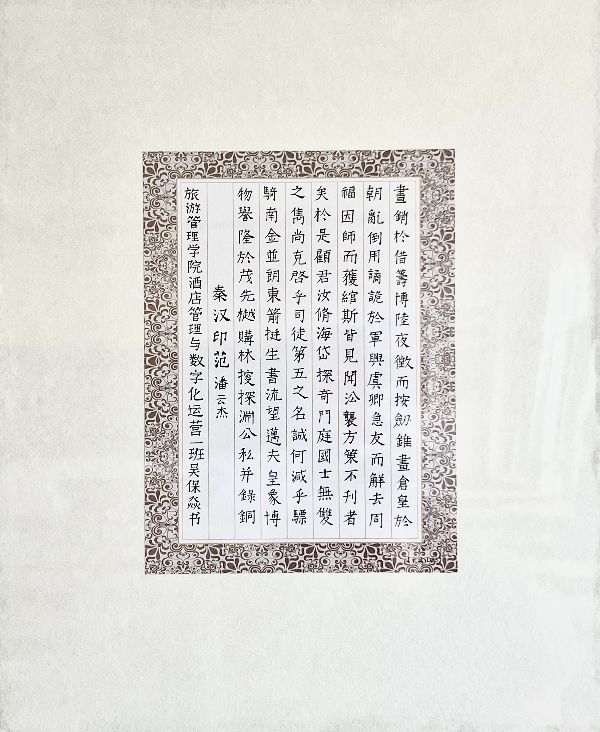 晝銷於借籌博陸夜徹而按劔錐畫倉皇於
朝亂倒用謫詭於軍興虞卿急友而解去同
福因師而獲綰斯皆見聞沿襲方策不刊者
矣於是顧君汝脩海岱探奇門庭國士無雙
之雋尚克啓乎司徒第五之名誠何減乎驃
騎南金並朗東箭挺生書流望邁夫皇象博
物譽隆於茂先樾購林搜探淵公私并錄銅
秦汉印范 潘云杰
旅游管理学院酒店管理与数字化运营一班吴保焱书